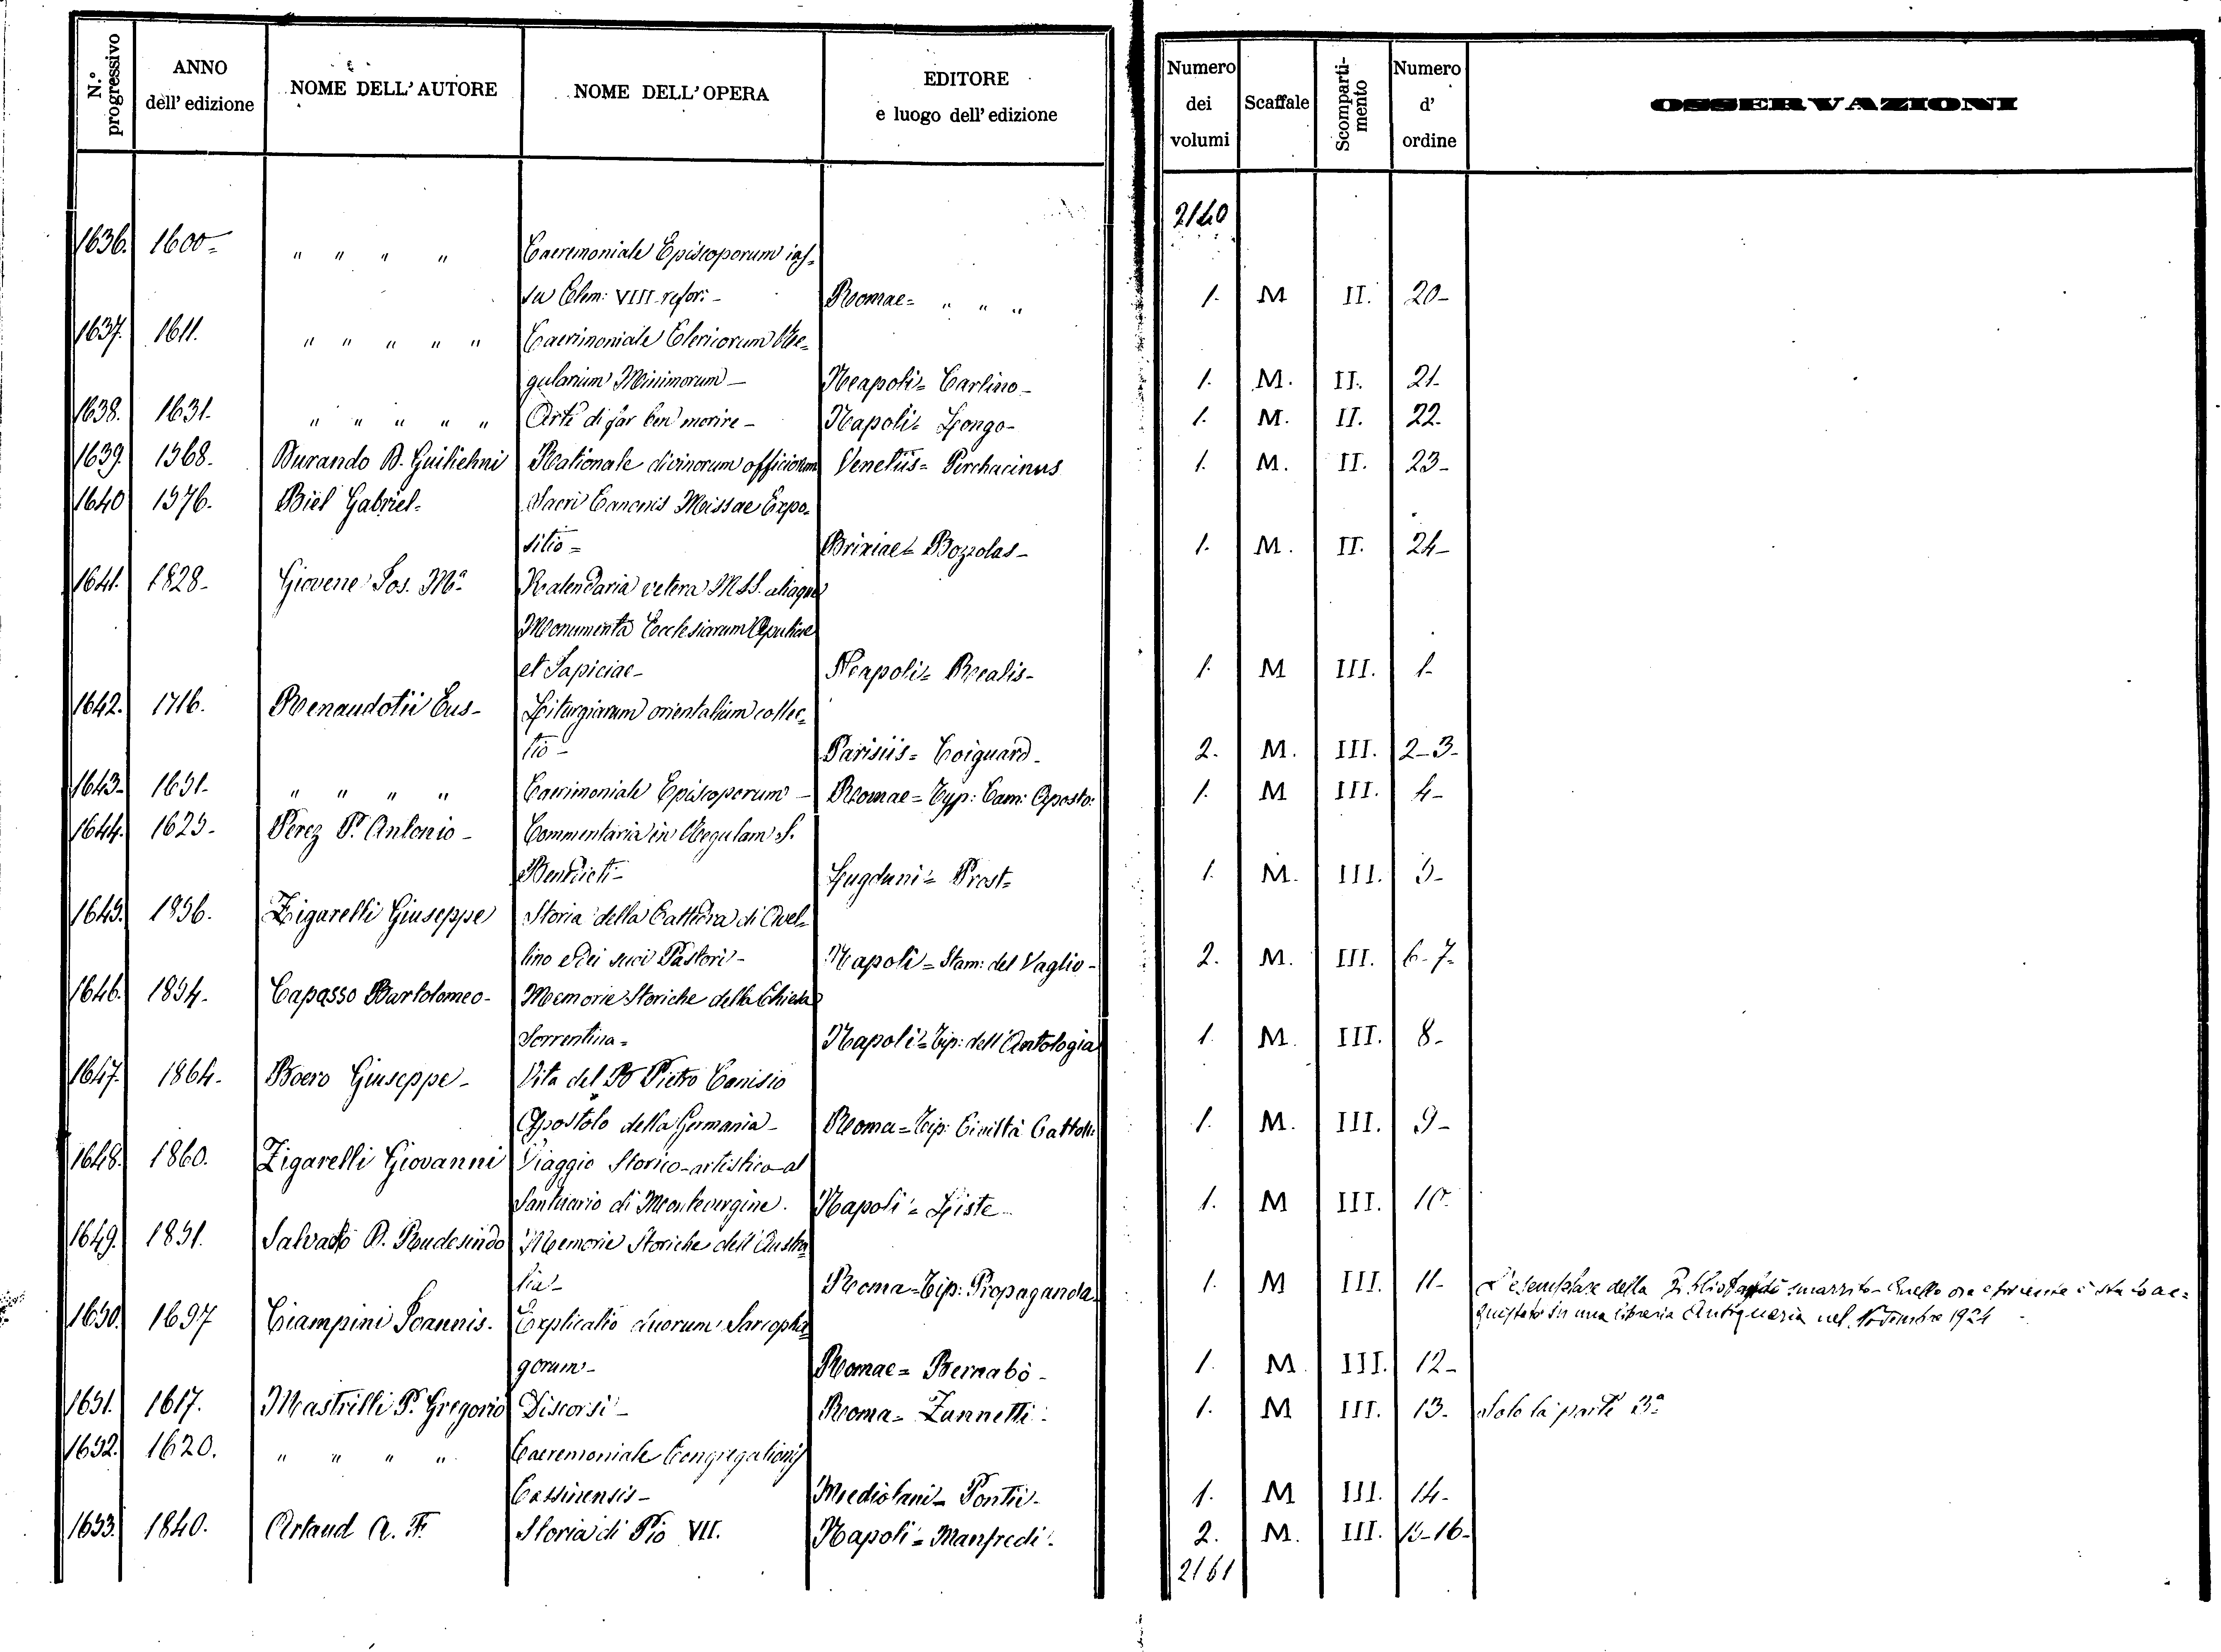 N.° progressivo
ANNO dell' edizione
NOME DELL'AUTORE
NOME DELL'OPERA
EDITORE e luogo dell' edizione
Numero dei volumi
Scaffale
Scomparti-mento
Numero d' ordine
OSSERVAZIONI
2140
1636. 1600- " " " " Caeremoniale Episcoporum ius=
su Clem: VIII refor:- Romae= " " " 1. M II. 20-
1637. 1611. " " " " " Caerimoniale Clericorum Re=
gularium Minimorum- Neapoli= Carlino- 1. M. II. 21-
1638. 1631. " " " " " Arte di far ben morire- Napoli= Longo- 1. M. II. 22.
1639. 1568. Durando D. Guilielmi Rationale divinorum officiorum Venetiis= Perchacinus 1. M. II. 23-
1640 1576. Biel Gabriel- Sacri Canonis Missae Expo-
sitio= Brixiae= Bozzolas- 1. M. II. 24-
1641. 1828- Giovene Jos. Mª Kalendaria vetera MSS. aliaque
Monumenta Ecclesiarum Apuliae
et Japiciae- Neapoli= Realis- 1. M III. 1-
1642. 1716. Renaudotii Eus- Liturgiarum orientalium collec=
tio- Parisiis= Coignard- 2. M. III. 2-3-
1643- 1651- " " " " Caerimoniale Episcoporum- Romae= Typ: Cam: Aposto: 1. M III. 4-
1644. 1625- Perez P. Antonio- Commentaria in Regulam S.
Benedicti- Lugduni= Prost= 1. M. III. 5-
1645. 1856. Zigarelli Giuseppe Storia della Cattedra di Avel=
lino e dei suoi Pastori- Napoli= Stam: del Vaglio- 2. M. III. 6-7-
1646. 1854. Capasso Bartolomeo- Memorie Storiche della Chiesa
Sorrentina- Napoli= Tip: dell'Antologia 1. M. III. 8-
1647. 1864. Boero Giuseppe- Vita del B Pietro Canisio
Apostolo della Germania- Roma= Tip: Civiltà Cattoli: 1. M. III. 9-
1648. 1860. Zigarelli Giovanni Viaggio Storico-artistico-al
Santuario di Montevergine. Napoli= Liste- 1. M III. 10.
1649. 1851. Salvado D. Rudesindo Memorie Storiche dell'Austra
lia- Roma= Tip: Propaganda- 1. M III. 11- L'esemplare della smarrito- Quello ora è stato ac=
quistato in una libreria Antiquaria nel Novembre 1924
1650. 1697 Ciampini Joannis. Explicatio duorum Sarcopha
gorum- Romae= Bernabò- 1. M III. 12-
1651. 1617. Mastrilli P. Gregorio Discorsi- Roma- Zannetti- 1. M III. 13. Solo la parte 3ª
1652. 1620. " " " " Caeremoniale Congregationis
Cassinensis- Mediolani- Pontii- 1. M III. 14-
1653. 1840. Artaud A. F. Storia di Pio VII. Napoli= Manfredi- 2. M. III. 15-16-
2161